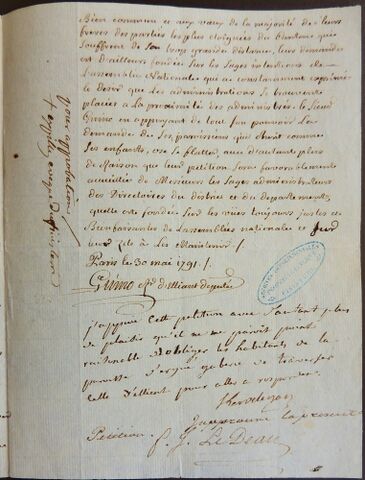 Bien commun et aux vœux de la majorité de leurs
freres des parties les plus eloignées du Canton qui
souffrent de son trop grande distance, leur demande
est d'ailleurs fondée sur les sages intentions de
L'assemblée Nationale qui a constamment exprimé
le desir que les administrations se trouvent
placées à La proximité des administrés. le Sieur
Guino en appuyant de tout son pouvoir La
demande de ses paroissiens qui chérit comme
ses enfants, ose se flatter, avec d'autant plus
de Raison que leur petition sera favorablement
accueillie de Messieurs les sages administrateurs
des Directoires du district et du departement,
quelle est fondée sur les vues toujours justes et
Bienfaisantes de L'assemblée nationale et
à Les Maintenir /.
Paris le 30 mai 1791 /.
Guino député
j'appuie cette petition avec d'autant plus
de plaisir qu'il ne me paroit point
raisonable d'obliger les habitants de la
paroisse d'ergué gaberic de traverser
celle d'elliant pour aller a rosporden.
Kervelegan
j'approuve la présente
Pétition. f. J. Le Déan
pour approbation